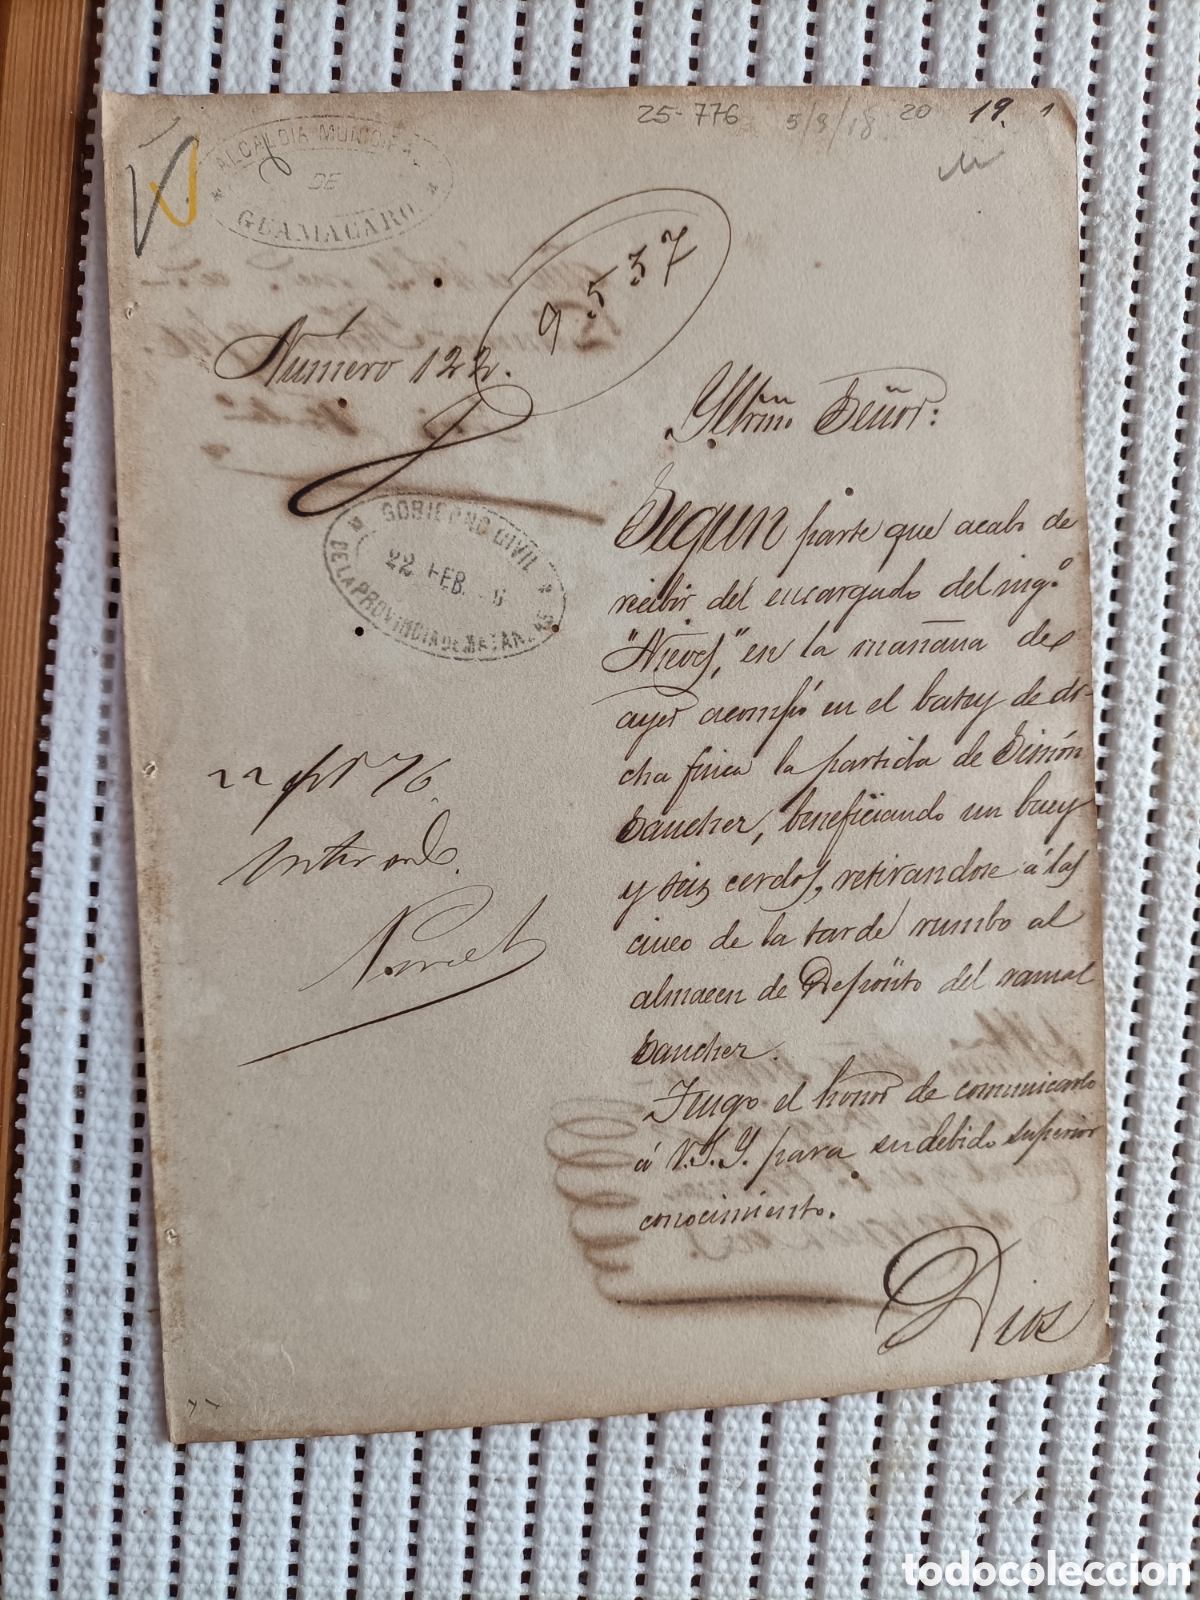 25-776 5/9/18 20 19. 1
ALCALDIA MUNICIPAL
DE
GUAMACARO
9537
Número 122.
Yltmo Señor:
GOBIERNO CIVIL
22 FEB. 6
DE LA PROVINCIA DE MATANZAS
Segun parte que acabo de
recibir del encargado del ingo
"Nieves," en la mañana de
ayer acampó en el batey de di-
cha finca la partida de Simón
Sancher, beneficiando un buey
y seis cerdos, retirandose á las
cinco de la tarde rumbo al
almacen de Depósito del ramal
Sancher.
Tengo el honor de comunicarlo
á V.S.Y. para su debido superior
conocimiento.
22 76
Enterado.
Porset
Dios
todocoleccion